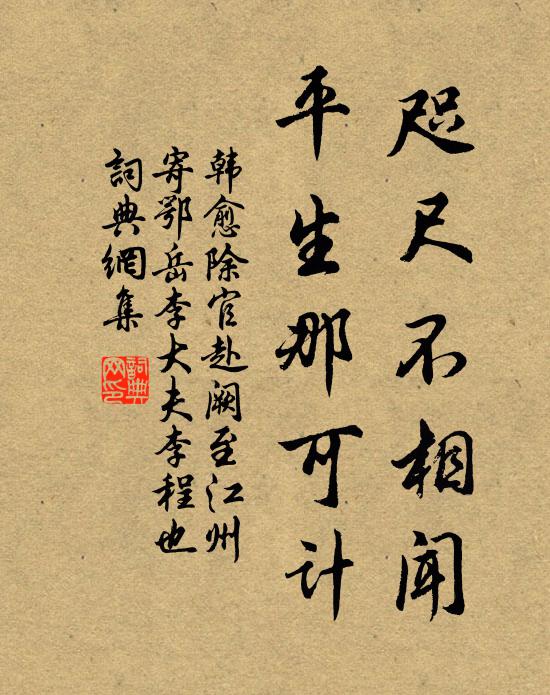 咫尺不相聞
平生那可計
韓愈除官赴闕至江州
寄鄂岳李大夫李程也
詞典網集
詞典網印